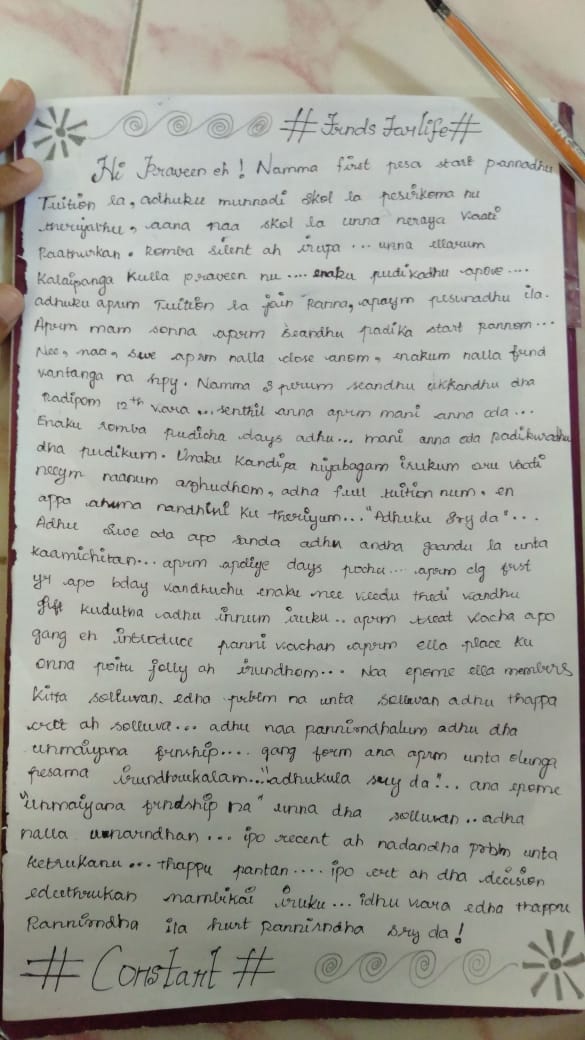 # Frnds Farlife #
Hi Praveen eh! Namma first pesa start pannadhu
Tuition la, adhuku munnadi skol la pesirkoma nu
theriyathu, aana naa skol la unna neraya vaati
Paathurkan. Romba silent ah irupa... unna ellarum
Kalaipanga kulla praveen nu.... enaku pudikadhu apove....
adhuku aprm Tuition la join Panna, apaym pesunadhu ila.
Aprm mam sonna aprm seandhu padika start pannom...
Nee, naa, aprm nalla close anom, enakum nalla frnd
vantanga na hpy. Namma 3 perum seandhu ukkandhu dha
Padipom 12th vara... senthil anna aprm mani anna oda...
Enaku romba pudicha days adhu... mani anna oda padikuradhu
dha pudikum. Unaku kandipa niyabagam irukum oru vaati
neeym naanum azhudhom, adha full tuition num. en
appa amma nandhini ku theriyum... "Adhuku Sry da"...
Adhu oda apo sanda adhu andha gaandu la unta
kaamichitan... aprm apdiye days pochu.... aprm clg frst
yr apo bday vandhuchu enaku nee veedu thedi vandhu
gift kudutna adhu innum iruku.. aprm treat vacha apo
gang eh introduce panni vachan aprm ella place ku
onna poitu jolly ah irundhom... Naa epome ella members
kitta solluvan. edha prblm na unta solluvan adhu thappa
crct ah solluva... adhu naa pannirndhalum adhu dha
unmaiyana frnship.... gang form ana aprm unta olunga
pesama irundhrukalam..."adhukula sry da"... ana epome
"unmaiyana frndship na" unna dha solluvan.. adha
nalla unarndhan... ipo recent ah nadandha prblm unta
ketrukanu... thappu pantan.... ipo crct ah dha decision
eduthrukan nambikai iruku... idhu vara edha thappu
Pannirndha ila hurt pannirndha sry da!
# Constant #